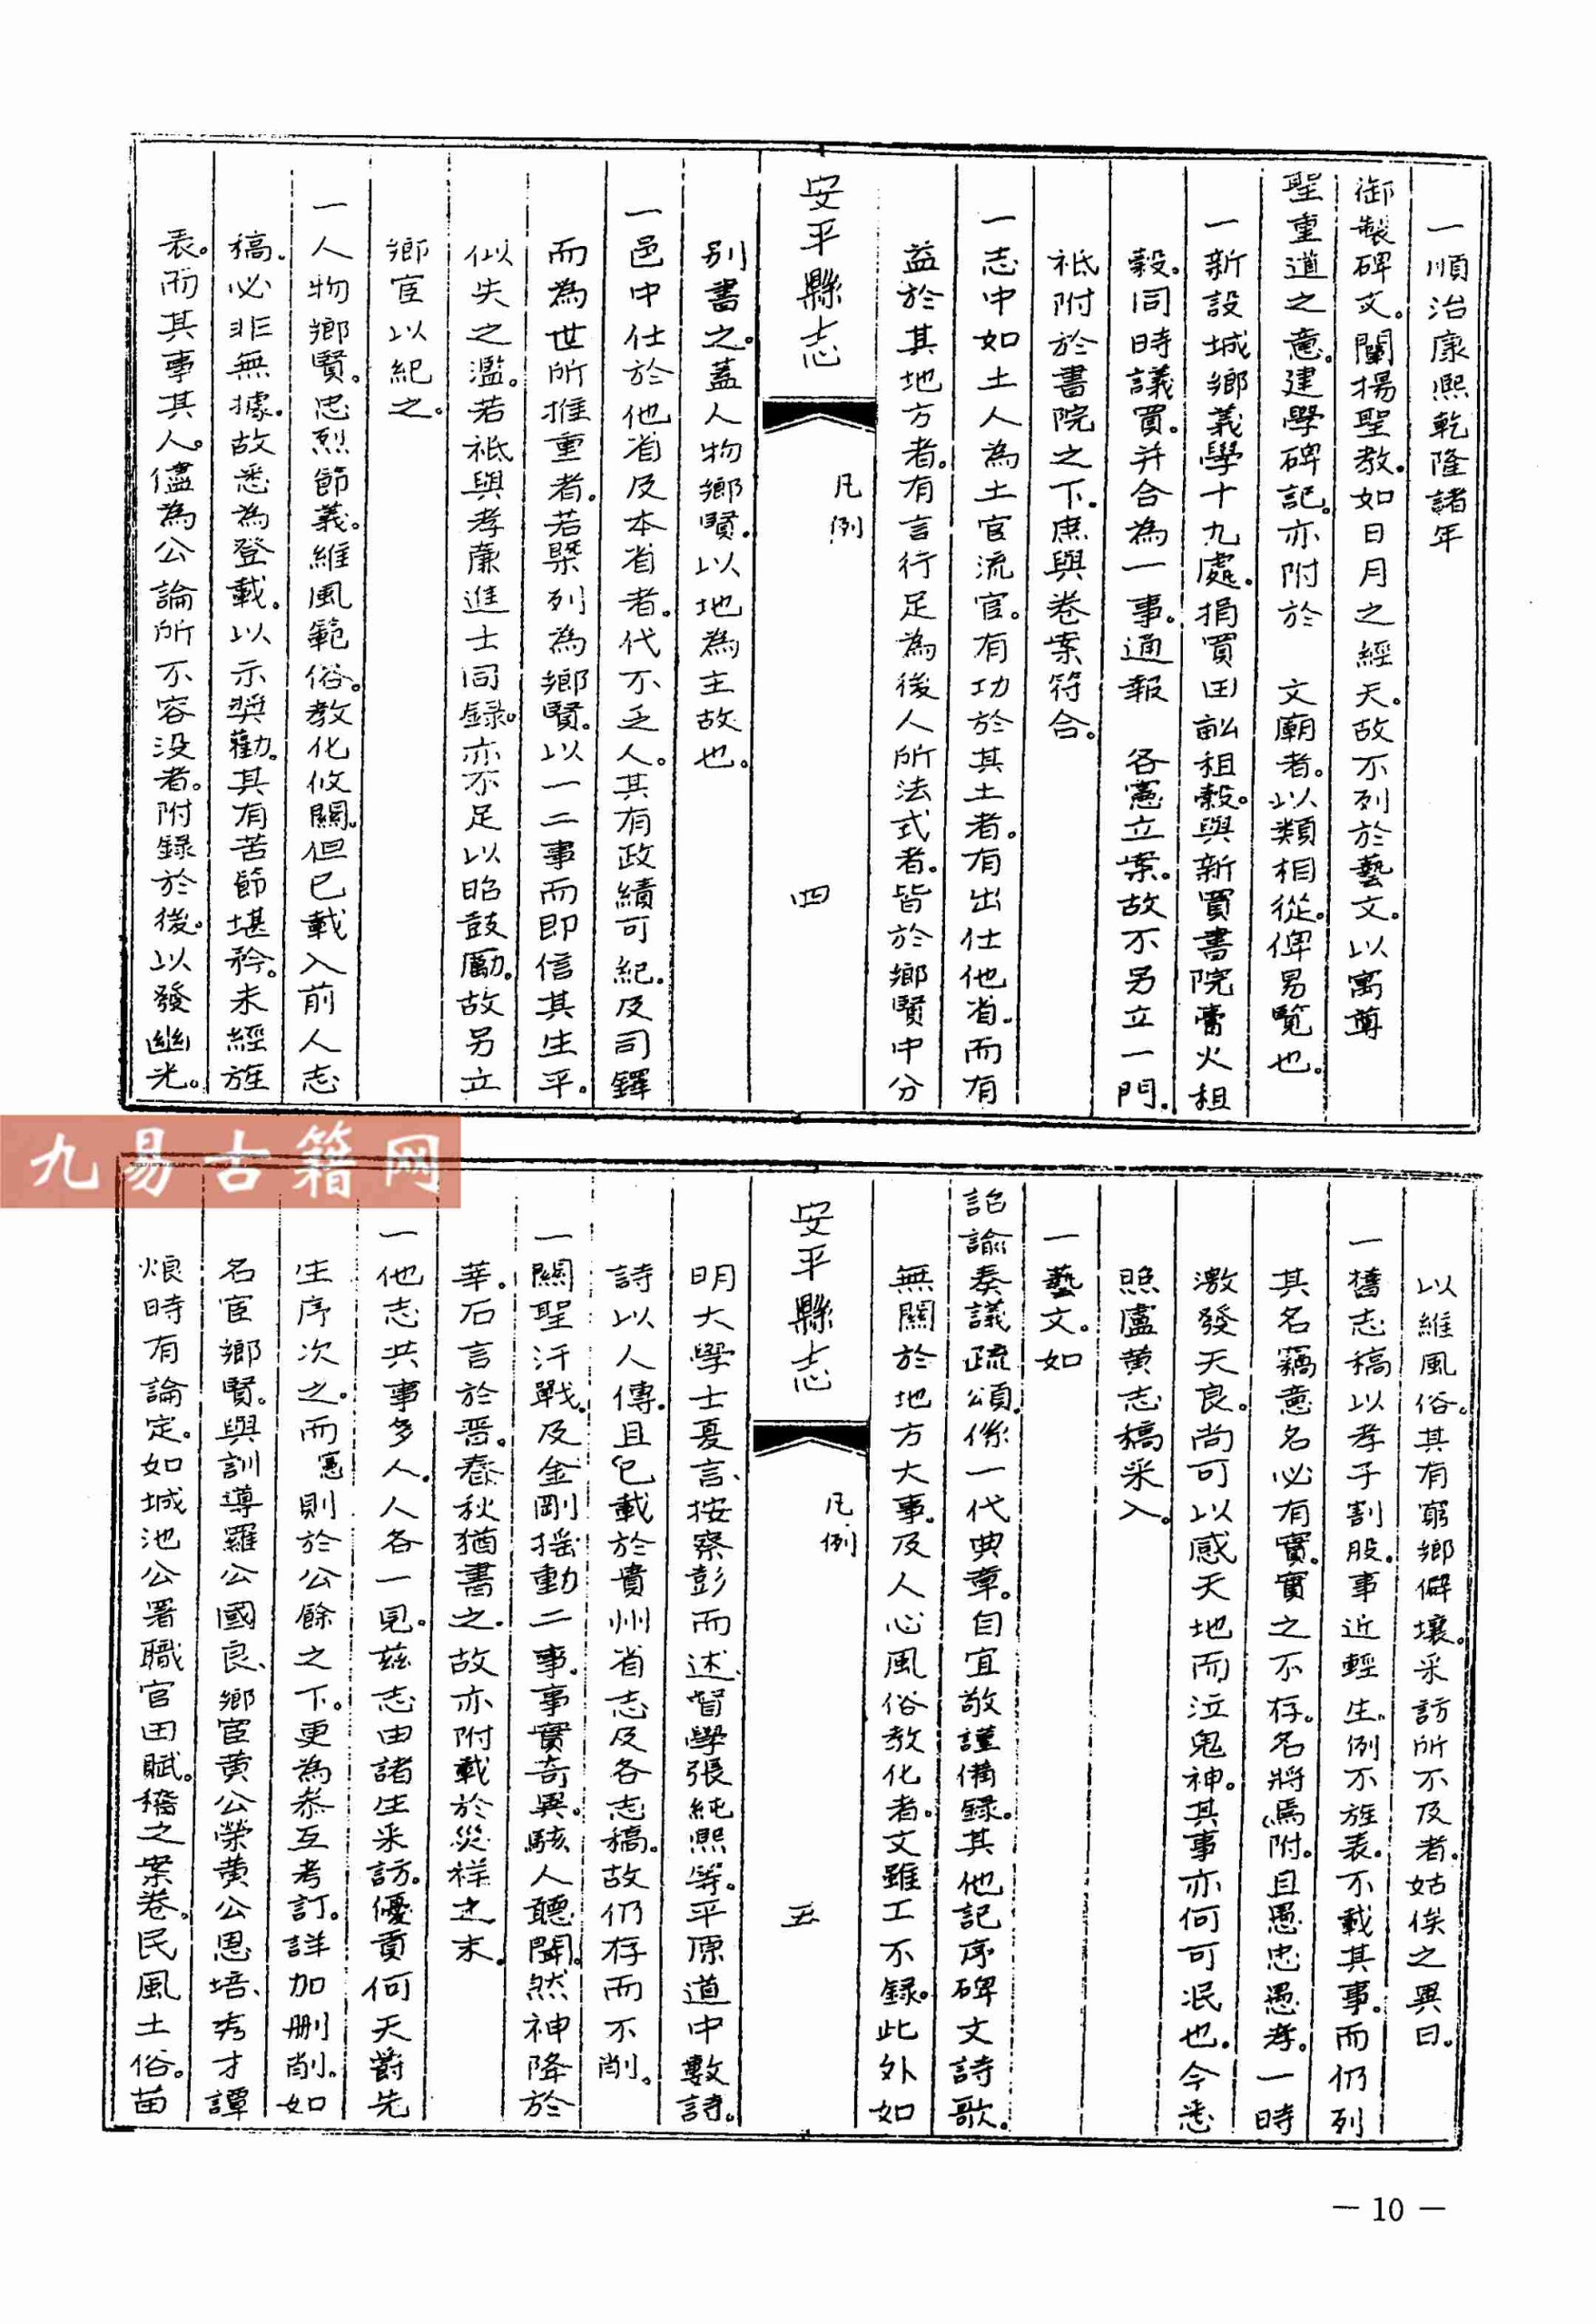 一順治康熙乾隆諸年
御製碑文。闡揚聖教。如日月之經天。故不列於藝文。以寓尊
聖重道之意。建學碑記。亦附於　文廟者。以類相從。俾易覽也。
一新設城鄉義學十九處。捐買田畝租穀。與新買書院膏火租
穀。同時議買。并合為一事。通報　各憲立案。故不另立一門。
祗附於書院之下。庶與卷案符合。
一志中如土人為土官流官。有功於其土者。有出仕他省。而有
益於其地方者。有言行足為後人所法式者。皆於鄉賢中分
安平縣志　凡例　四
別書之。蓋人物鄉賢。以地為主故也。
一邑中仕於他省及本省者。代不乏人。其有政績可紀。及司鐸
而為世所推重者。若槩列為鄉賢。以一二事而即信其生平。
似失之濫。若祗與孝廉進士同錄。亦不足以昭鼓勵。故另立
鄉宦以紀之。
一人物鄉賢。忠烈節義。維風範俗。教化攸關。但已載入前人志
稿。必非無據。故悉為登載。以示奬勸。其有苦節堪矜。未經旌
表。而其事其人。儘為公論所不容没者。附錄於後。以發幽光。
以維風俗。其有窮鄉僻壤。采訪所不及者。姑俟之異日。
一舊志稿以孝子割股。事近輕生。例不旌表。不載其事。而仍列
其名。竊意名必有實。實之不存。名將焉附。且愚忠愚孝。一時
激發天良。尚可以感天地而泣鬼神。其事亦何可泯也。今悉
照盧黄志稿采入。
一藝文。如
詔諭奏議疏頌。係一代典章。自宜敬謹備録。其他記序碑文詩歌。
無關於地方大事。及人心風俗教化者。文雖工不錄。此外如
安平縣志　凡例　五
明大學士夏言、按察彭而述、督學張純熙等。平原道中數詩。
詩以人傳。且已載於貴州省志及各志稿。故仍存而不削。
一關聖汗戰。及金剛搖動二事。事實奇異。駭人聽聞。然神降於
莘。石言於晋。春秋猶書之。故亦附載於災祥之末。
一他志共事多人。人各一見。兹志由諸生采訪。優貢何天爵先
生序次之。而憲則於公餘之下。更為叅互考訂。詳加刪削。如
名宦鄉賢。與訓導羅公國良、鄉宦黄公榮黄公恩培、秀才譚
烺時有論定。如城池公署職官田賦。稽之案卷。民風土俗。苗
— 10 —
九易古籍网